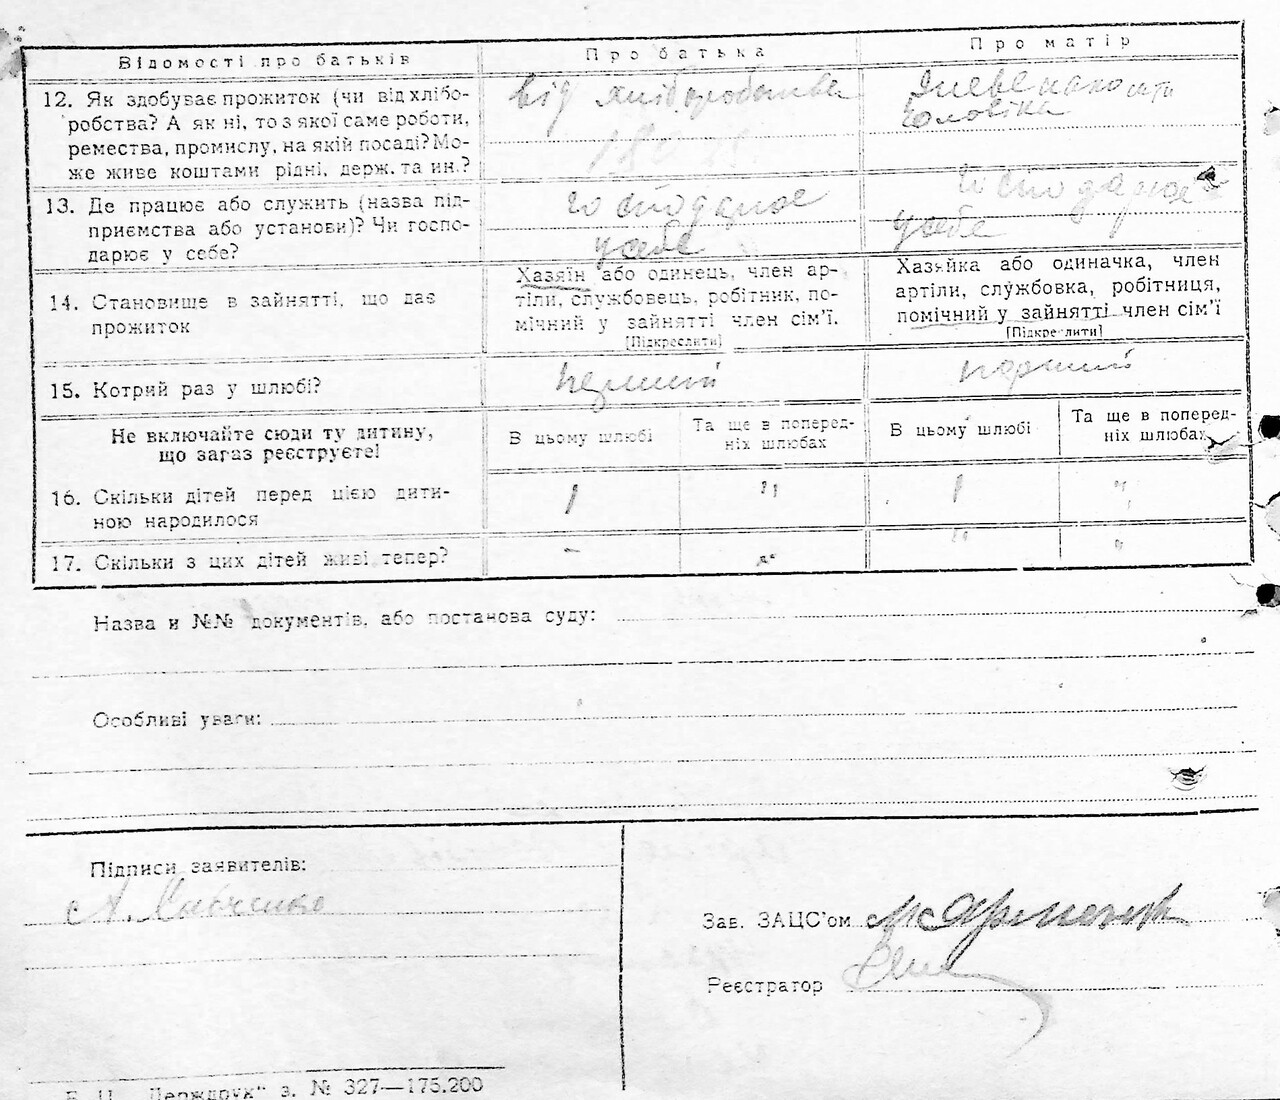 Відомості про батьків
Про батька
Про матір
12. Як здобуває прожиток (чи від хлібо-
робства? А як ні, то з якої саме роботи,
ремества, промислу, на якій посаді? Мо-
же живе коштами рідні, держ. та ин.?
від хліборобства
чоловіка
13. Де працює або служить (назва під-
приємства або установи)? Чи госпо-
дарює у себе?
господарює
у себе
господарює
у себе
14. Становище в зайнятті, що дає
прожиток
Хазяїн або одинець, член ар-
тіли, службовець, робітник, по-
мічний у зайнятті член сім'ї.
[Підкреслити]
Хазяйка або одиначка, член
артіли, службовка, робітниця,
помічний у зайнятті член сім'ї
[Підкреслити]
15. Котрий раз у шлюбі?
перший
перший
Не включайте сюди ту дитину,
що загаз реєструєте!
В цьому шлюбі
Та ще в поперед-
ніх шлюбах
В цьому шлюбі
Та ще в поперед-
ніх шлюбах
16. Скільки дітей перед цією дити-
ною народилося
1
"
1
"
17. Скільки з цих дітей живі тепер?
-
"
"
"
Назва и №№ документів, або постанова суду:
Особливі уваги:
Підписи заявителів:
Зав. ЗАЦС'ом
Реєстратор
"Держдрук" з. № 327—175.200